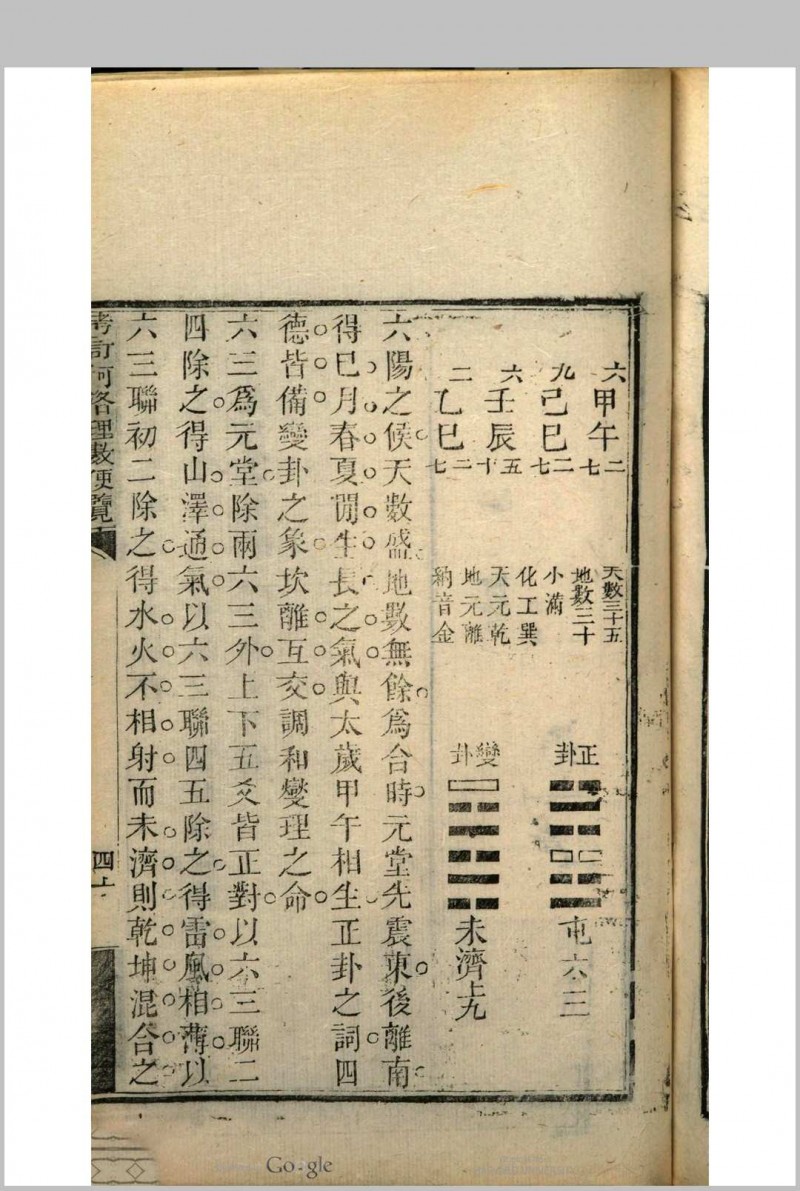 六甲午二七
九己巳二七
六壬辰五十
二乙巳二七
天數三十五
地數三十
小滿
化工巽
天元乾
地元離
納音金
正卦
屯六三
變卦
未濟上九
六陽之候天數盛地數無餘爲合時元堂先震東後離南
得巳月春夏間生長之氣與太歲甲午相生正卦之詞四
德皆備變卦之象坎離互交調和燮理之命
六三爲元堂除兩六三外上下五爻皆正對以六三聯二
四除之得山澤通氣以六三聯四五除之得雷風相薄以
六三聯初二除之得水火不相射而未濟則乾坤混合之
考訂河洛理數便覽
四十
Google